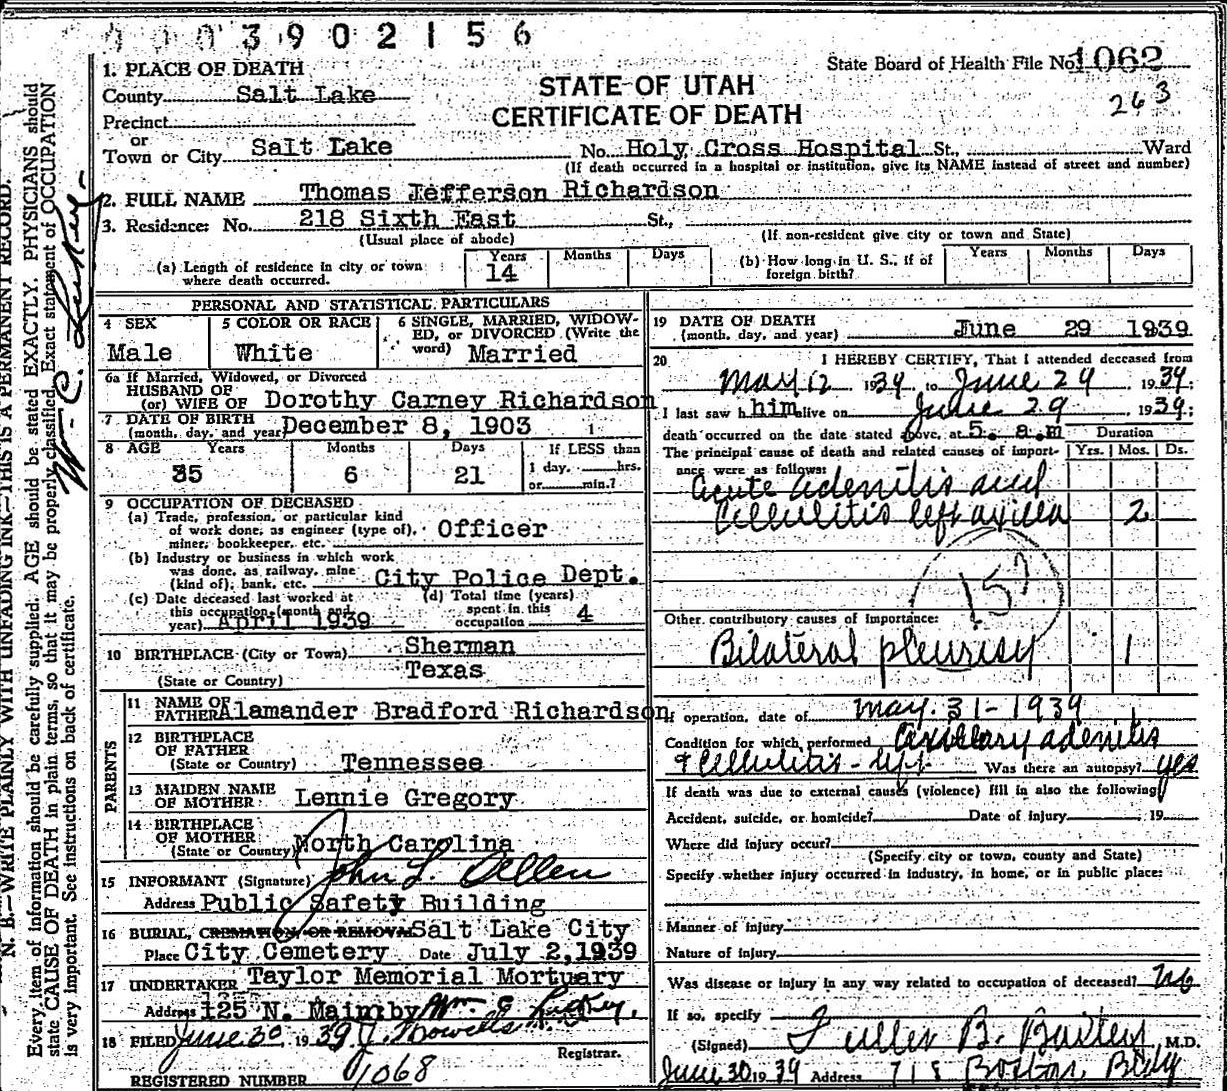 0003902156
State Board of Health File No. 1062
263
STATE OF UTAH
CERTIFICATE OF DEATH
1. PLACE OF DEATH
County Salt Lake
Precinct
or
Town or City Salt Lake No. Holy Cross Hospital St., Ward
(If death occurred in a hospital or institution, give its NAME instead of street and number)
2. FULL NAME Thomas Jefferson Richardson
3. Residence: No. 218 Sixth East St.,
(Usual place of abode) (If non-resident give city or town and State)
(a) Length of residence in city or town where death occurred. Years 14 Months Days
(b) How long in U. S., if of foreign birth? Years Months Days
PERSONAL AND STATISTICAL PARTICULARS
4 SEX Male
5 COLOR OR RACE White
6 SINGLE, MARRIED, WIDOW-
ED, or DIVORCED (Write the
word) Married
6a If Married, Widowed, or Divorced
HUSBAND OF
(or) WIFE OF Dorothy Carney Richardson
7 DATE OF BIRTH
(month, day, and year) December 8, 1903
8 AGE Years Months Days If LESS than
35 6 21 1 day, hrs.
or min.?
9 OCCUPATION OF DECEASED
(a) Trade, profession, or particular kind
of work done, as engineer (type of), Officer
miner, bookkeeper, etc.
(b) Industry or business in which work
was done, as railway, mine
(kind of), bank, etc. City Police Dept.
(c) Date deceased last worked at
this occupation (month and
year) April 1939
(d) Total time (years)
spent in this
occupation 4
10 BIRTHPLACE (City or Town) Sherman
(State or Country) Texas
PARENTS
11 NAME OF
FATHER Alamander Bradford Richardson
12 BIRTHPLACE
OF FATHER
(State or Country) Tennessee
13 MAIDEN NAME
OF MOTHER Lennie Gregory
14 BIRTHPLACE
OF MOTHER
(State or Country) North Carolina
15 INFORMANT (Signature) John L. Allen
Address Public Safety Building
16 BURIAL, CREMATION, OR REMOVAL Salt Lake City
Place City Cemetery Date July 2, 1939
17 UNDERTAKER Taylor Memorial Mortuary
Address 125 N. Main by Wm C
18 FILED June 30 1939
Registrar.
REGISTERED NUMBER 1068
19 DATE OF DEATH
(month, day, and year) June 29 1939
20 I HEREBY CERTIFY, That I attended deceased from
May 12 1939, to June 29, 1939;
I last saw him alive on June 29, 1939;
death occurred on the date stated above, at 5. a.m Duration
The principal cause of death and related causes of import- Yrs. Mos. Ds.
ance were as follows:
Acute adenitis and
Cellulitis left axilla 2
Other contributory causes of importance:
Bilateral pleurisy 1
If operation, date of May. 31-1939
Condition for which performed Axillary adenitis
& Cellulitis - left Was there an autopsy? yes
If death was due to external causes (violence) fill in also the following
Accident, suicide, or homicide? Date of injury 19
Where did injury occur?
(Specify city or town, county and State)
Specify whether injury occurred in industry, in home, or in public place:
Manner of injury
Nature of injury
Was disease or injury in any way related to occupation of deceased? No
If so, specify
(Signed) Fuller B. Bailey, M.D.
June 30 1939 Address Boston Bldg
N. B.—WRITE PLAINLY WITH UNFADING INK—THIS IS A PERMANENT RECORD.
Every item of information should be carefully supplied. AGE should be stated EXACTLY. PHYSICIANS should
state CAUSE OF DEATH in plain terms, so that it may be properly classified. Exact statement of OCCUPATION
is very important. See instructions on back of certificate.